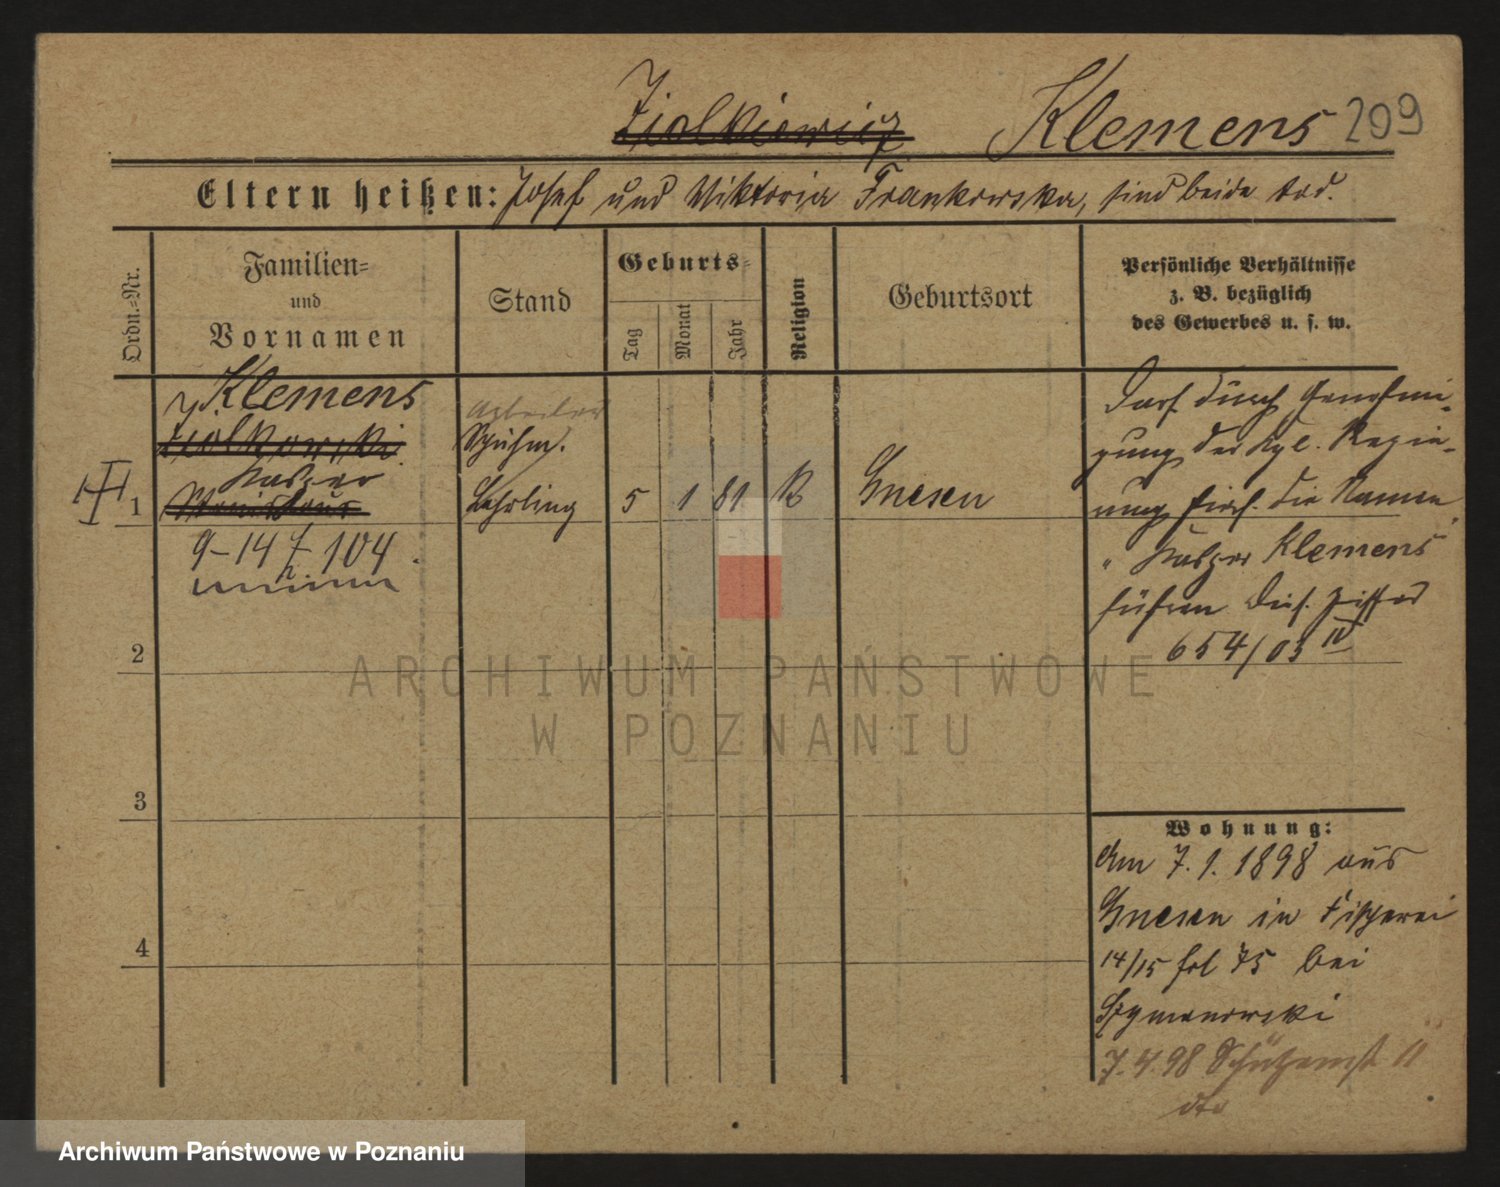 Ziolkiewicz Klemens 209
Eltern heißen: Josef und Viktoria Frankowska, sind beide tod.
Ordn.=Nr.
Familien=
und
Vornamen
Stand
Geburts=
Tag
Monat
Jahr
Religion
Geburtsort
Persönliche Verhältnisse
z. B. bezüglich
des Gewerbes u. s. w.
Klemens
Ziolkowski
Kasper
1
Arbeiter
Schuhm.
Lehrling
5 1 81 K Gnesen
9-14 104
Darf durch Genehmi-
gung der Kgl. Regie-
rung die Namen
„Kasper Klemens"
führen
654/03 IV
2
3
4
Wohnung:
Am 7.1.1898 aus
Gnesen in Fischerei
14/15 fol 75 bei
Szymanowski
7.4.98 Schützenst. 11
dto
ARCHIWUM PAŃSTWOWE
W POZNANIU
Archiwum Państwowe w Poznaniu